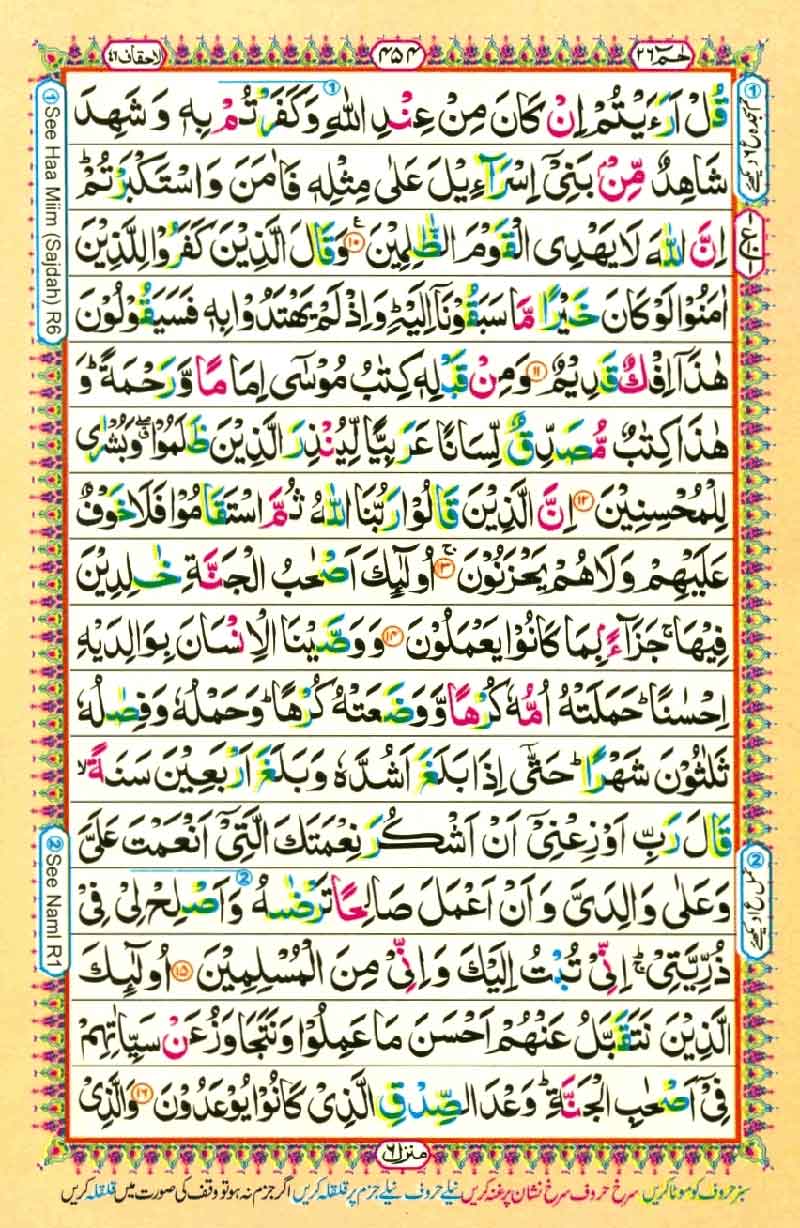 الاحقاف ٤٦
٤٥٤
حٰمٓ ٢٦
قُلْ اَرَءَيْتُمْ اِنْ كَانَ مِنْ عِنْدِ اللّٰهِ وَكَفَرْتُمْ بِهٖ وَشَهِدَ
شَاهِدٌ مِّنْۢ بَنِىْۤ اِسْرَآءِيْلَ عَلٰى مِثْلِهٖ فَاٰمَنَ وَاسْتَكْبَرْتُمْ ؕ
اِنَّ اللّٰهَ لَا يَهْدِى الْقَوْمَ الظّٰلِمِيْنَ ۞۱۰ وَقَالَ الَّذِيْنَ كَفَرُوْا لِلَّذِيْنَ
اٰمَنُوْا لَوْ كَانَ خَيْرًا مَّا سَبَقُوْنَاۤ اِلَيْهِ ؕ وَاِذْ لَمْ يَهْتَدُوْا بِهٖ فَسَيَقُوْلُوْنَ
هٰذَاۤ اِفْكٌ قَدِيْمٌ ۞۱۱ وَمِنْ قَبْلِهٖ كِتٰبُ مُوْسٰٓى اِمَامًا وَّرَحْمَةً ؕ وَ
هٰذَا كِتٰبٌ مُّصَدِّقٌ لِّسَانًا عَرَبِيًّا لِّيُنْذِرَ الَّذِيْنَ ظَلَمُوْا ۖ وَبُشْرٰى
لِلْمُحْسِنِيْنَ ۞۱۲ اِنَّ الَّذِيْنَ قَالُوْا رَبُّنَا اللّٰهُ ثُمَّ اسْتَقَامُوْا فَلَا خَوْفٌ
عَلَيْهِمْ وَلَا هُمْ يَحْزَنُوْنَ ۞۱۳ اُولٰٓئِكَ اَصْحٰبُ الْجَنَّةِ خٰلِدِيْنَ
فِيْهَا ۚ جَزَآءًۢ بِمَا كَانُوْا يَعْمَلُوْنَ ۞۱۴ وَوَصَّيْنَا الْاِنْسَانَ بِوَالِدَيْهِ
اِحْسٰنًا ؕ حَمَلَتْهُ اُمُّهٗ كُرْهًا وَّوَضَعَتْهُ كُرْهًا ؕ وَحَمْلُهٗ وَفِصٰلُهٗ
ثَلٰثُوْنَ شَهْرًا ؕ حَتّٰىۤ اِذَا بَلَغَ اَشُدَّهٗ وَبَلَغَ اَرْبَعِيْنَ سَنَةً ۙ
قَالَ رَبِّ اَوْزِعْنِىْۤ اَنْ اَشْكُرَ نِعْمَتَكَ الَّتِىْۤ اَنْعَمْتَ عَلَىَّ
وَعَلٰى وَالِدَىَّ وَاَنْ اَعْمَلَ صَالِحًا تَرْضٰٮهُ وَاَصْلِحْ لِىْ فِىْ
ذُرِّيَّتِىْ ۚ اِنِّىْ تُبْتُ اِلَيْكَ وَاِنِّىْ مِنَ الْمُسْلِمِيْنَ ۞۱۵ اُولٰٓئِكَ
الَّذِيْنَ نَتَقَبَّلُ عَنْهُمْ اَحْسَنَ مَا عَمِلُوْا وَنَتَجَاوَزُ عَنْ سَيِّاٰتِهِمْ
فِىْۤ اَصْحٰبِ الْجَنَّةِ ؕ وَعْدَ الصِّدْقِ الَّذِىْ كَانُوْا يُوْعَدُوْنَ ۞۱۶ وَالَّذِىْ
منزل ٦
سبز حروف کو موٹا کریں سرخ حروف سرخ نشان پر غنہ کریں نیلے حروف نیلے جزم پر قلقلہ کریں اگر جزم نہ ہو تو وقف کی صورت میں قلقلہ کریں
① See Haa Miim (Sajdah) R6
② See Naml R1